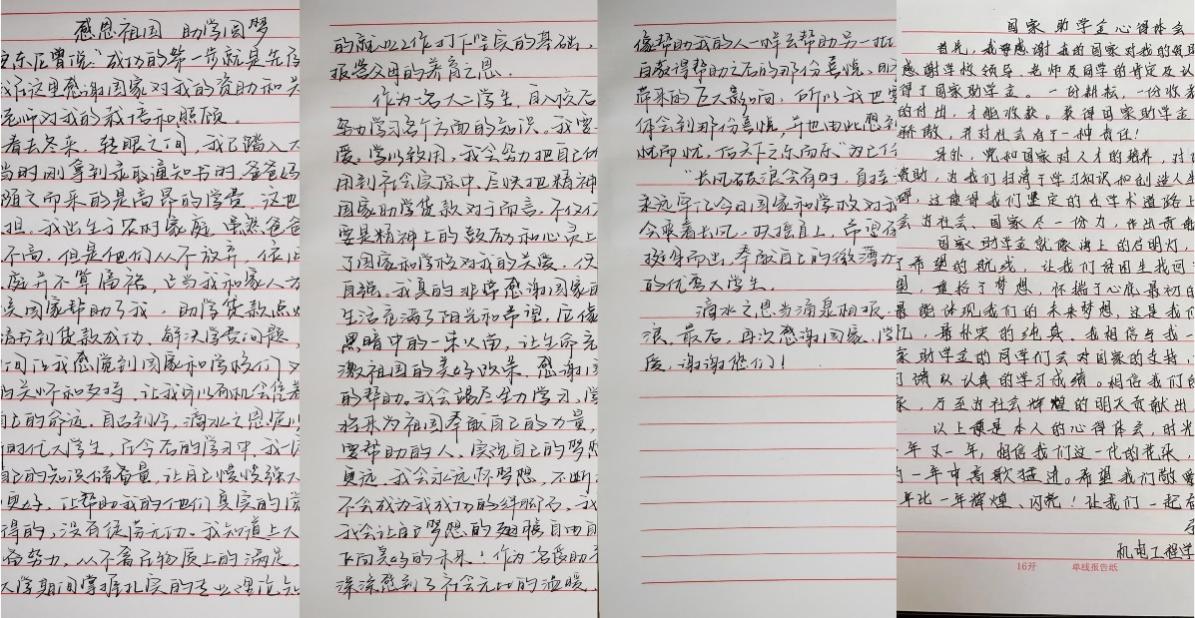 感恩祖国 助学圆梦
东尼曾说"成功的第一步就是先
在这里感谢国家对我的资助和关
老师对我的栽培和照顾。
暑去冬来，转眼之间，我已踏入大
当时刚拿到录取通知书时，爸爸妈
随之而来的是高昂的学费，这也
担，我出生于农村家庭，虽然爸爸
不高，但是他们从不放弃，依旧
庭并不算富裕，
国家帮助了我，助学贷款点
请书到贷款成功，解决学费问题，
间让我感觉到国家和学校们
的关怀和支持，让我可以有机会
上的命运。自己到今，滴水之恩
时代大学生，在今后的学习中，我
自己的知识储备量，让自己慢慢强大
更好，让帮助我的他们真实的
得的，没有徒劳无功。我知道上大
奋努力，从不着在物质上的满足，
大学期间掌握扎实的专业理论知
的就业工作打下坚实的基础，
报答父母的养育之恩。
作为一名大二学生，自入校后
努力学习各个方面的知识。我要
爱，学以致用，我会努力把自己
用到社会实际中，尽快把精神
国家助学贷款对于而言，不仅仅
要是精神上的鼓励和心灵上
了国家和学校对我的关爱，使
自强。我真的非常感谢国家
生活充满了阳光和希望，应像
黑暗中的一束火苗，让生命充
激祖国的美好政策，感谢
的帮助。我会竭尽全力学习，
将来为祖国奉献自己的力量，
要帮助的人，实现自己的梦想
更远，我会永远怀梦想，不断
不会成为我成功的绊脚石，我
我会让自己梦想的翅膀自由自
下向美好的未来！作为一名受助
深深感到了社会无比的温暖，
像帮助我的人一样去帮助另一批
自获得帮助之后的那份喜悦，
带来的巨大影响，所以我也要
体会到那份喜悦，并也由此感到
忧而忧，后天下之乐而乐"为己任
"长风破浪会有时，直挂
永远牢记今日国家和学校对我
今乘着长风，扶摇直上，希望
挺身而出，奉献自己的微薄力
的优秀大学生。
滴水之恩当涌泉相报，
浪，最后，再次感谢国家、学
度，谢谢您们！
国家助学金心得体会
首先，我要感谢我的国家对我的
感谢学校领导、老师及同学的肯定及认
得了国家助学金。一份耕耘，一份收
的付出，才能收获。获得国家助学金
骄傲，并对社会有了一种责任！
另外，党和国家对人才的培养，对
资助，为我们扫清了学习知识和创造人生
碍，这使得我们坚定的在学术道路上
会为社会、国家尽一份力，作出贡献
国家助学金就像海上的启明灯，
了希望的航线，让我们贫困生找回
望，重拾了梦想，怀揣于心底最初的
最能体现我们的未来梦想，这是我们
忆，最朴实的纯真。我相信与我一
家助学金的同学们会对国家的支持，
们请以认真的学习成绩。相信我们
家，乃至为社会辉煌的明天贡献出
以上便是本人的心得体会，时光
年又一年，相信我们这一代的花朵，
的一年中高歌猛进。希望我们敬爱
年比一年辉煌、闪亮！让我们一起
机电工程学
16开 单线报告纸